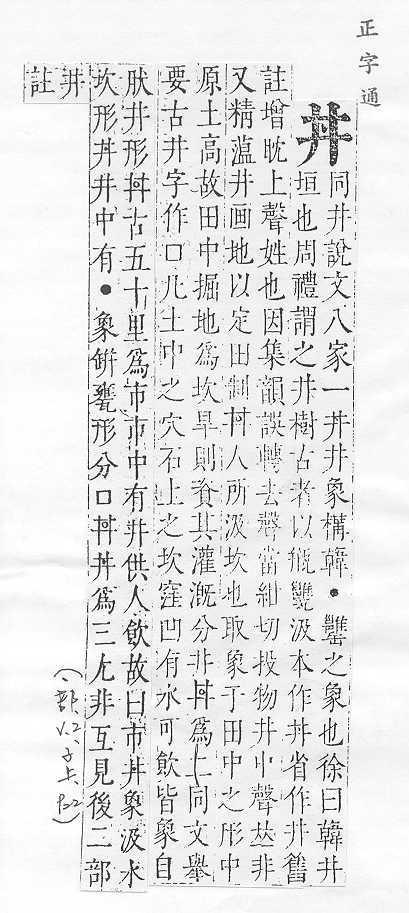 正字通
丼
同井說文八家一丼井象構韓●罋之象也徐曰韓井
垣也周禮謂之井樹古者以甁罋汲本作丼省作井舊
註增眈上聲姓也因集韻誤轉去聲當紺切投物井中聲𠀤非
又精薀井画地以定田制丼人所汲坎也取象于田中之形中
原土高故田中掘地爲坎旱則資其灌漑分井丼爲二同文舉
要古井字作口凡土中之穴石上之坎窪凹有水可飮皆象自
肰井形丼古五十里爲市市中有井供人飮故曰市井象汲水
坎形丼井中有●象缾罋形分口丼井爲三尤非互見後二部
井註